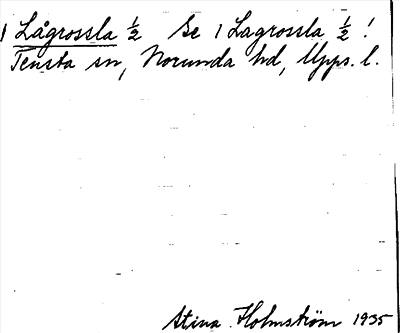 1 Lågrossla ½ Se 1 Lagrossla ½ !
Tensta sn, Norunda hd, Upps. l.
Stina Holmström 1935